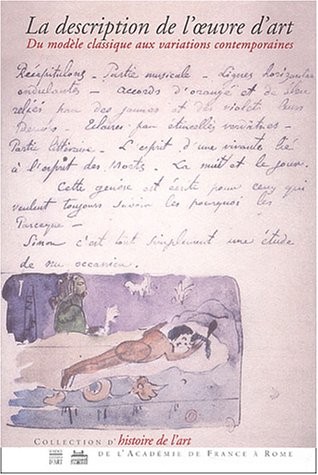 La description de l'œuvre d'art
Du modèle classique aux variations contemporaines
Récapitulons - Partie musicale - Lignes horizontales
ondulantes - accords d'orangé et de bleu
reliés par des jaunes et des violets leurs
dérivés - Eclairés par étincelles verdâtres -
Partie littéraire - L'esprit d'une vivante lié
à l'esprit des Morts. La nuit et le jour.
Cette genèse est écrite pour ceux qui
veulent toujours savoir les pourquoi les
parceque -
Sinon c'est tout simplement une étude
de nu océanien.
COLLECTION D'histoire de l'art
DE L'ACADÉMIE DE FRANCE À ROME